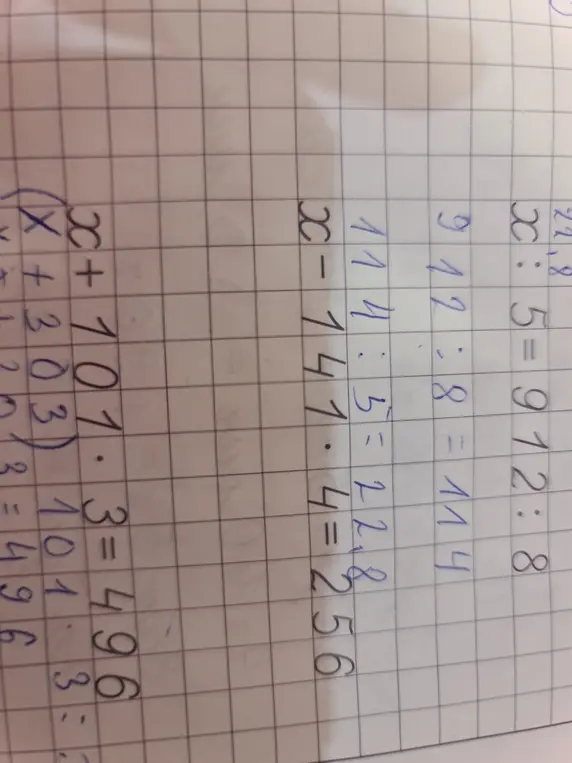 22,8
x : 5 = 912 : 8
912 : 8 = 114
114 : 5 = 22,8
x - 141 · 4 = 256
x + 101 · 3 = 496
(x + 303) 101 · 3 =